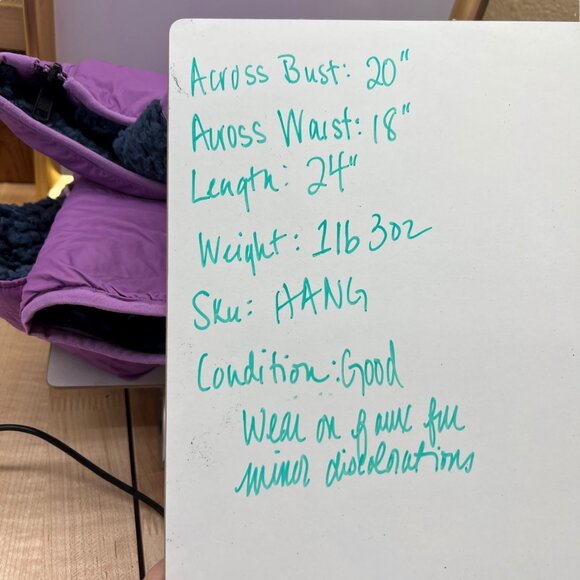 Across Bust: 20"
Across Waist: 18"
Length: 24"
Weight: 1lb 3oz
Sku: HANG
Condition: Good
Wear on faux fur
minor discolorations